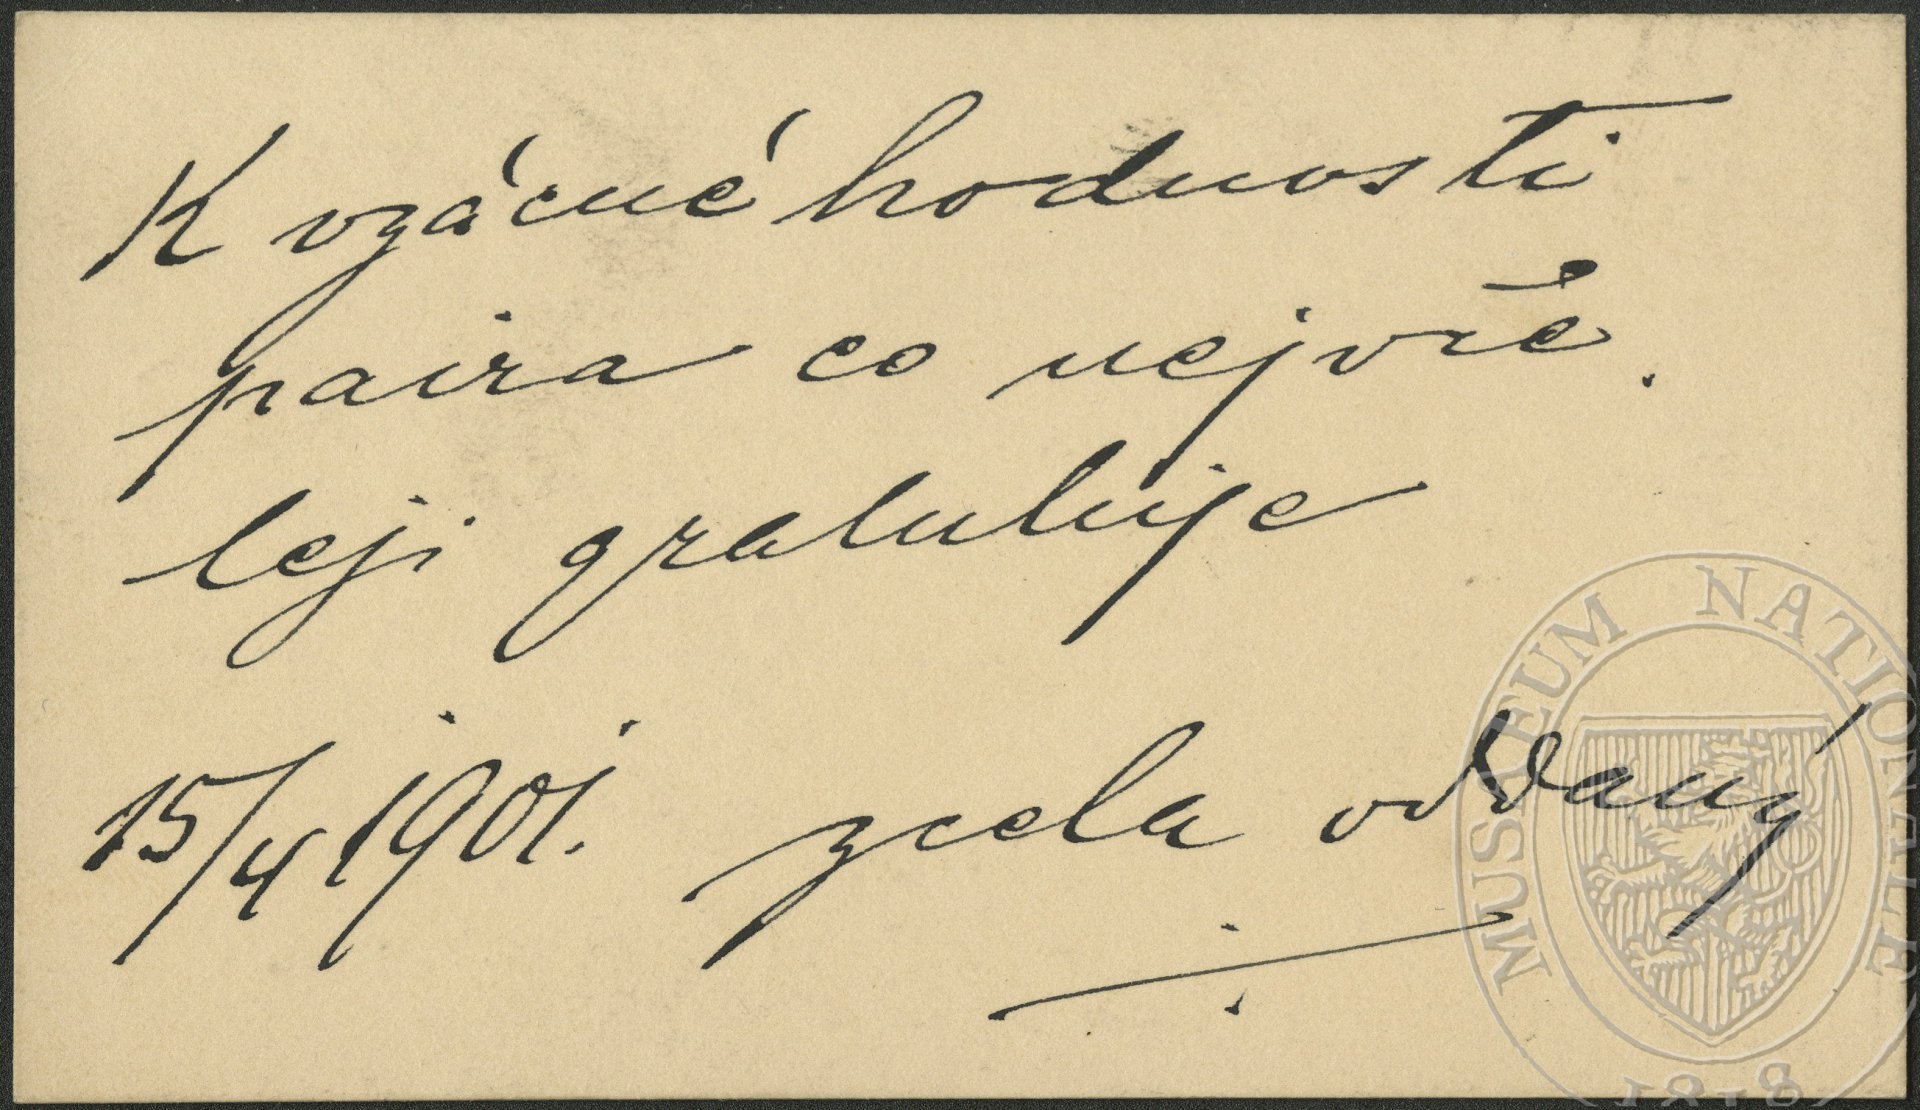 K vzácné hodnosti
paira co nejvře-
leji gratuluje
15/4 1901. zcela oddaný
MUSEUM NATIONALE
1818